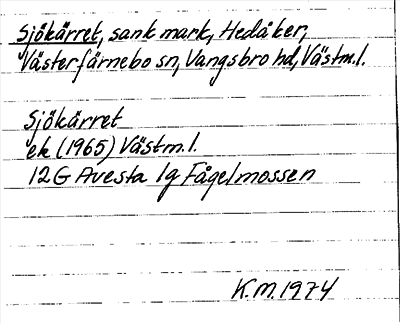 Sjökärret, sank mark, Hedåker,
Västerfärnebo sn, Vangsbro hd, Västm.l.
Sjökärret
ek (1965) Västm.l.
12G Avesta 1g Fågelmossen
K.M. 1974